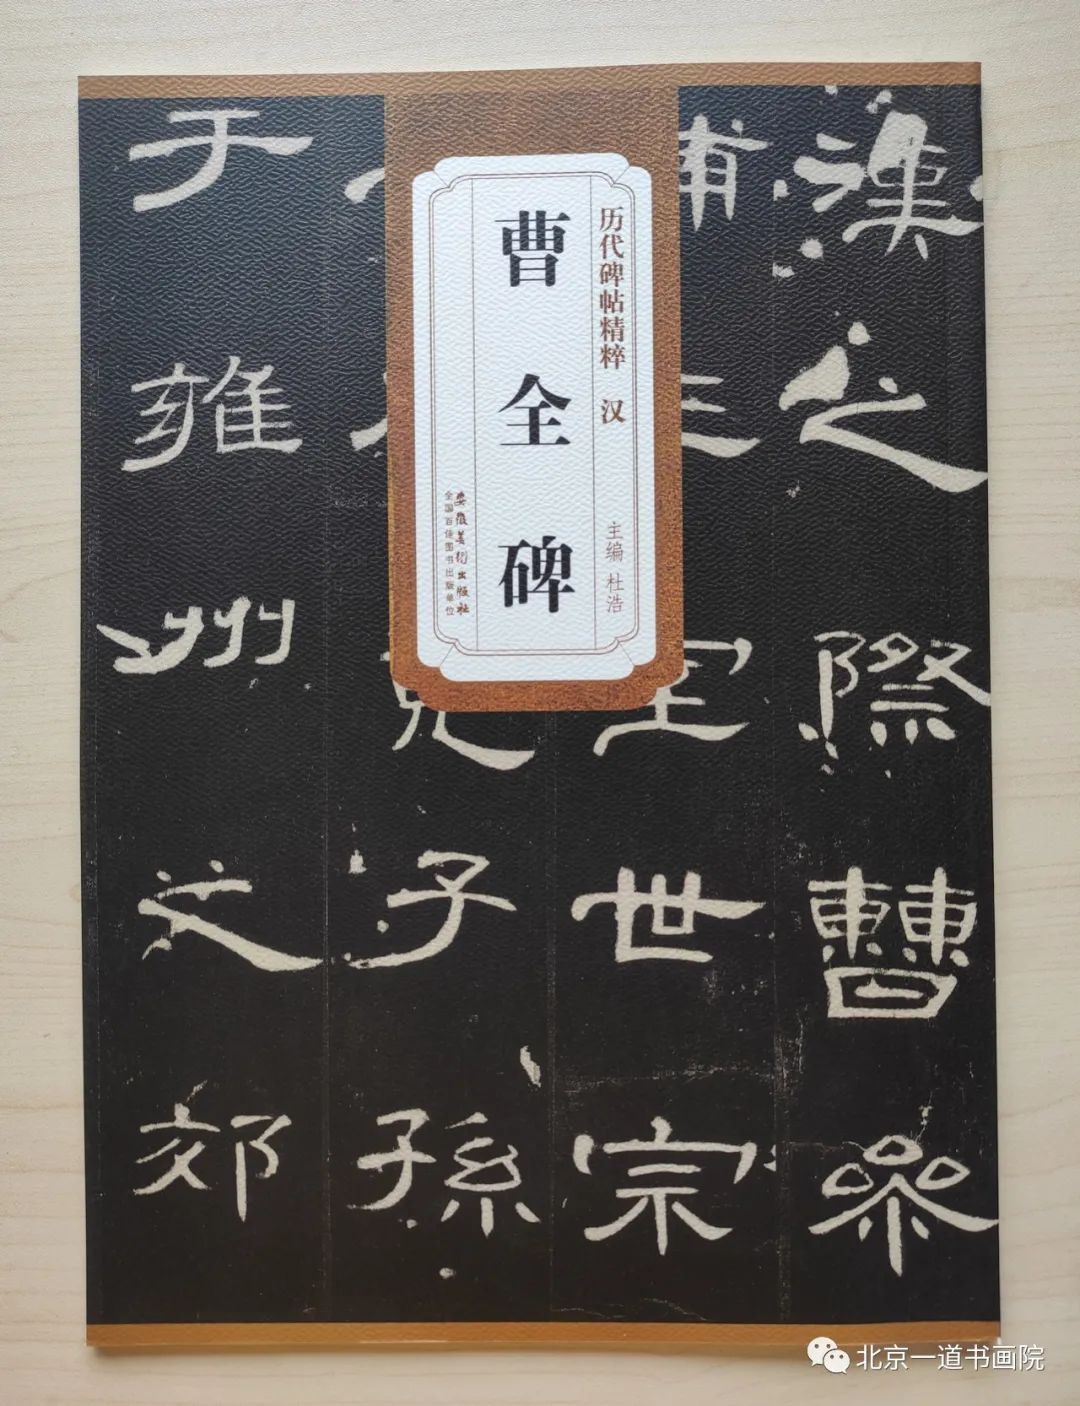 漢之際曹參
輔王室世宗
竟子孫
于雍州文郊
历代碑帖精粹 汉
主编 杜浩
曹全碑
安徽美术出版社
全国百佳图书出版单位
北京一道书画院